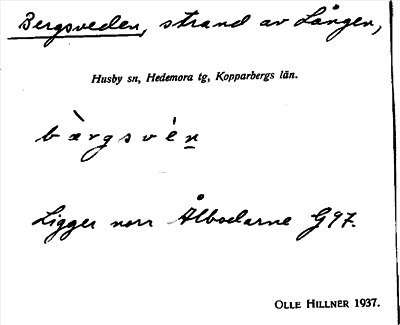 Bergsveden, strand av Lången,
Husby sn, Hedemora tg, Kopparbergs län.
bæ̀rgsvèn
Ligger norr Ålbodarne G97.
OLLE HILLNER 1937.